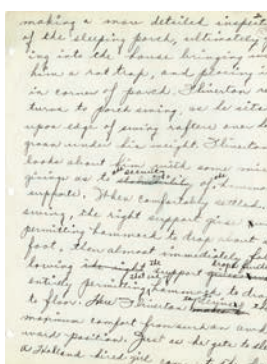 making a more detailed inspect
of the sleeping porch, ultimately
ing into the house bringing
him a rat trap, and placing i
in corner of porch. Flinerton re
turns to porch swing, as he sits
upon edge of swing rafters over
groan under his weight. Flinerton
looks about him with some mis
givings as to the security of the hammock
supports. When comfortably settled
swing, the right support gives
permitting hammock to drop about a
foot. Then almost immediately fol
lowing the support
entirely permitting hammock to drop
to floor. Flinerton
maximum comfort from such an awk
ward position. Just as he gets to sle
a Holland hired girl